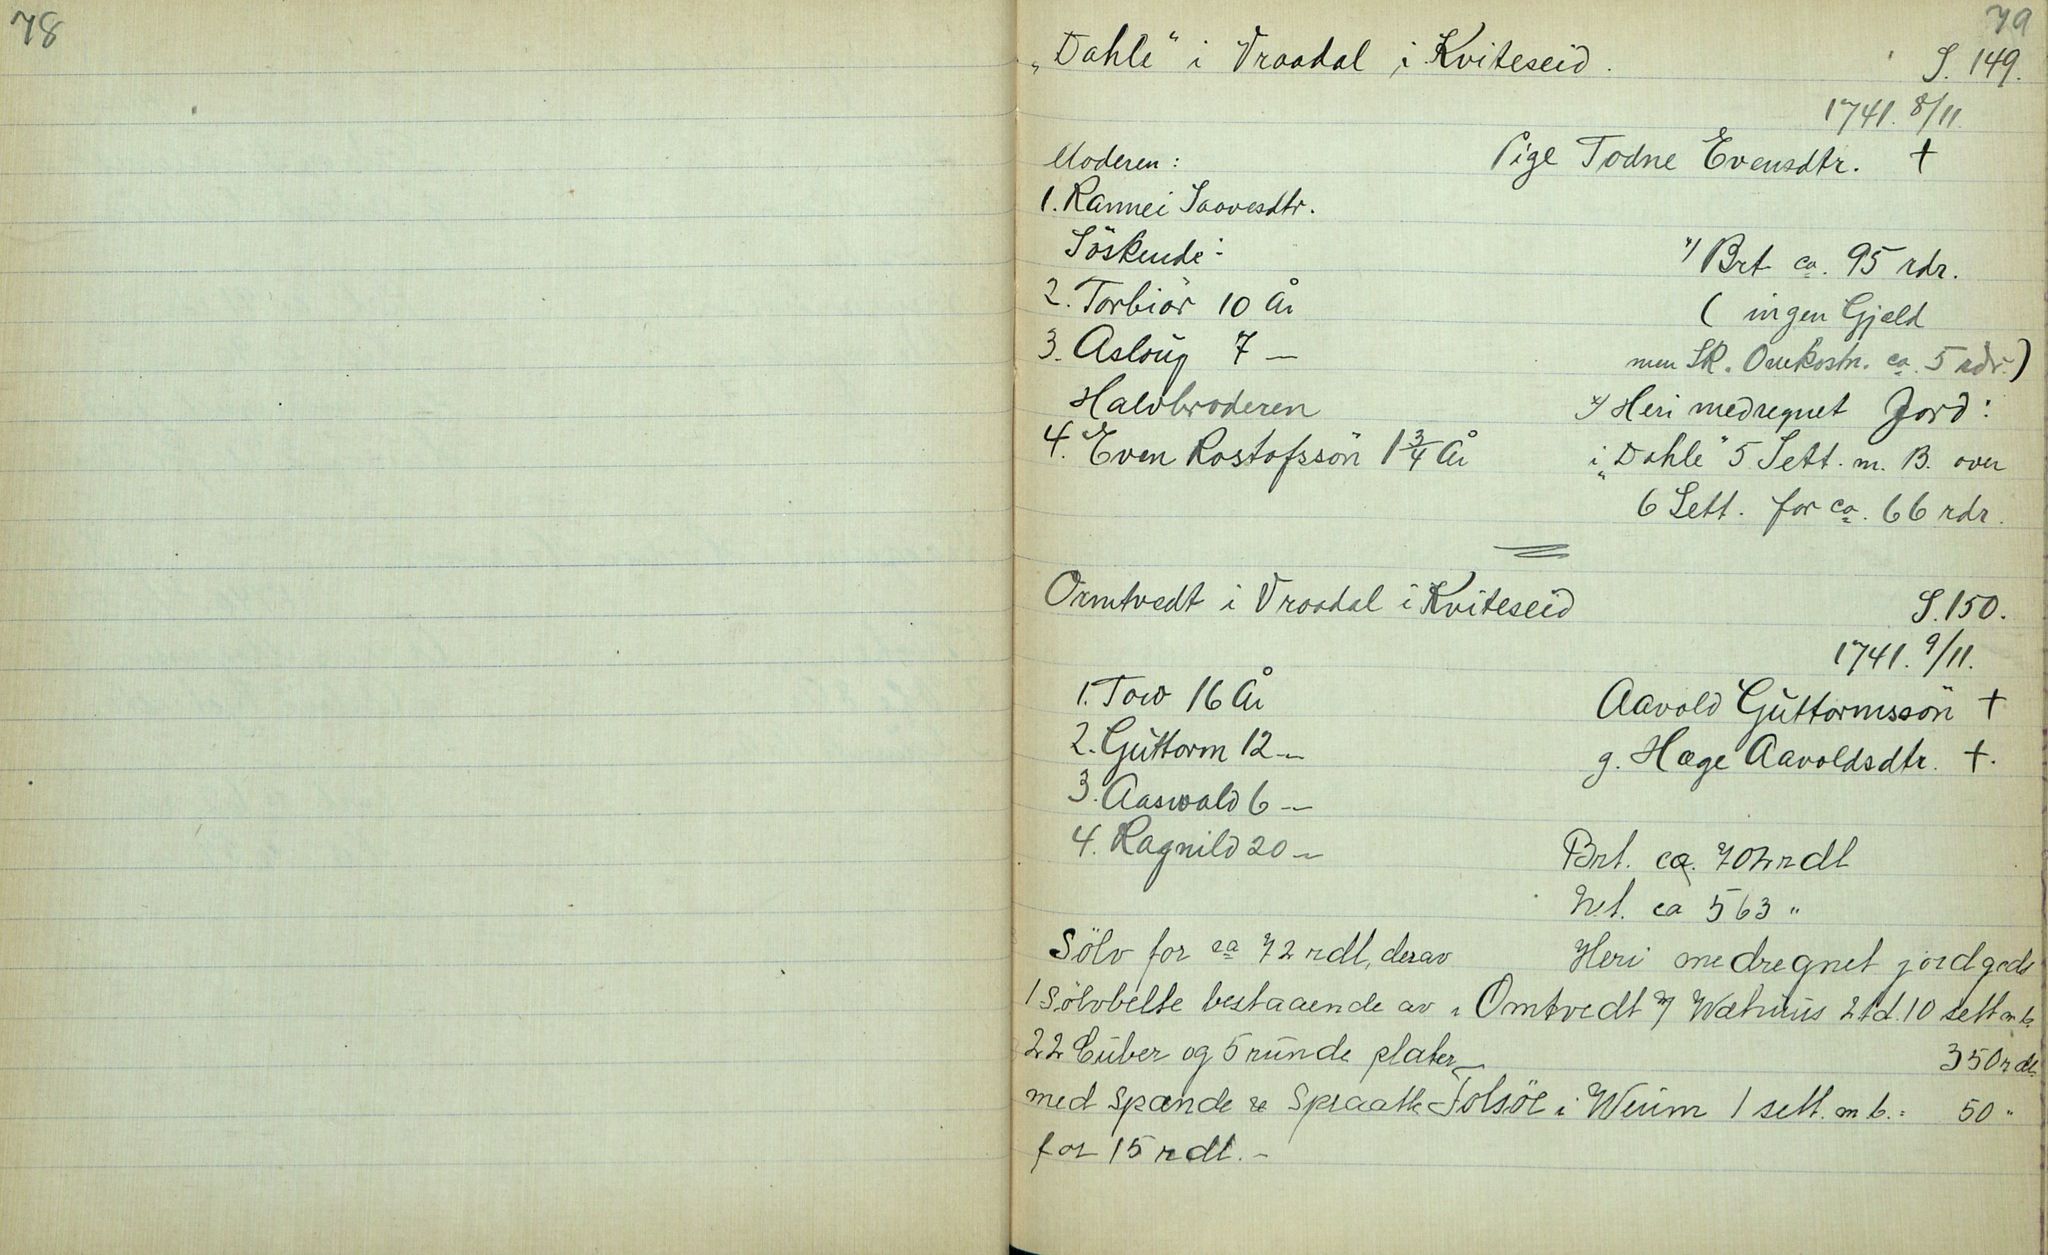 78
79
„Dahle“ i Vraadal i Kviteseid. S. 149.
1741. 8/11.
Moderen: Pige Todne Evensdtr. †
1. Rannei Saavesdtr.
Söskende: x/ Brt ca. 95 rdr.
2. Torbiör 10 År ( ingen Gjæld
3. Asloug 7 — men Sk. Omkostn. ca. 5 rdr.)
Halvbroderen x/ Heri medregnet Jord:
4. Even Rostafssön 1 3/4 År i „Dahle“ 5 Sett. m. B. over
6 Sett. for ca. 66 rdr.
Ormtvedt i Vraadal i Kviteseid S. 150.
1741. 9/11.
1. Tow 16 År Aavold Guttormssön †
2. Guttorm 12 — g. Hæge Aavoldsdtr. †.
3. Aaswald 6 —
4. Ragnild 20 — Brt. ca. 702 rdl
Net. ca 563 "
Sölv for ca 72 rdl, derav Heri medregnet jordgods
1 Sölvbelte bestaaende av i Omtvedt Wæhuus 2 td. 10 sett m b.
22 Cuber og 5 runde plater 350 rdl.
med Spænde Spraatt Tolsöe i Weum 1 sett. m b. = 50 "
for 15 rdl. –